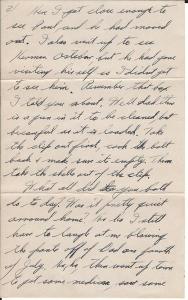 2/ Him I got close enough to
see Paul and he had moved
out. I also went up to see
Herman but he had gone
visiting himself so I didn't get
to see him. Remember that box
I told you about. Well that this
is a gun in it to be cleaned but
be careful as it is loaded. Take
the clip out first, cock the bolt
back & make sure its empty. Then
take the shells out of the clip.
What all did you both
do to day. Was it pretty quiet
arround home? Ho ho I still
have to laugh at me blowing
the pants off of Dad on fourth
of July. Ho, ho, then went up town
to get some medicine and some